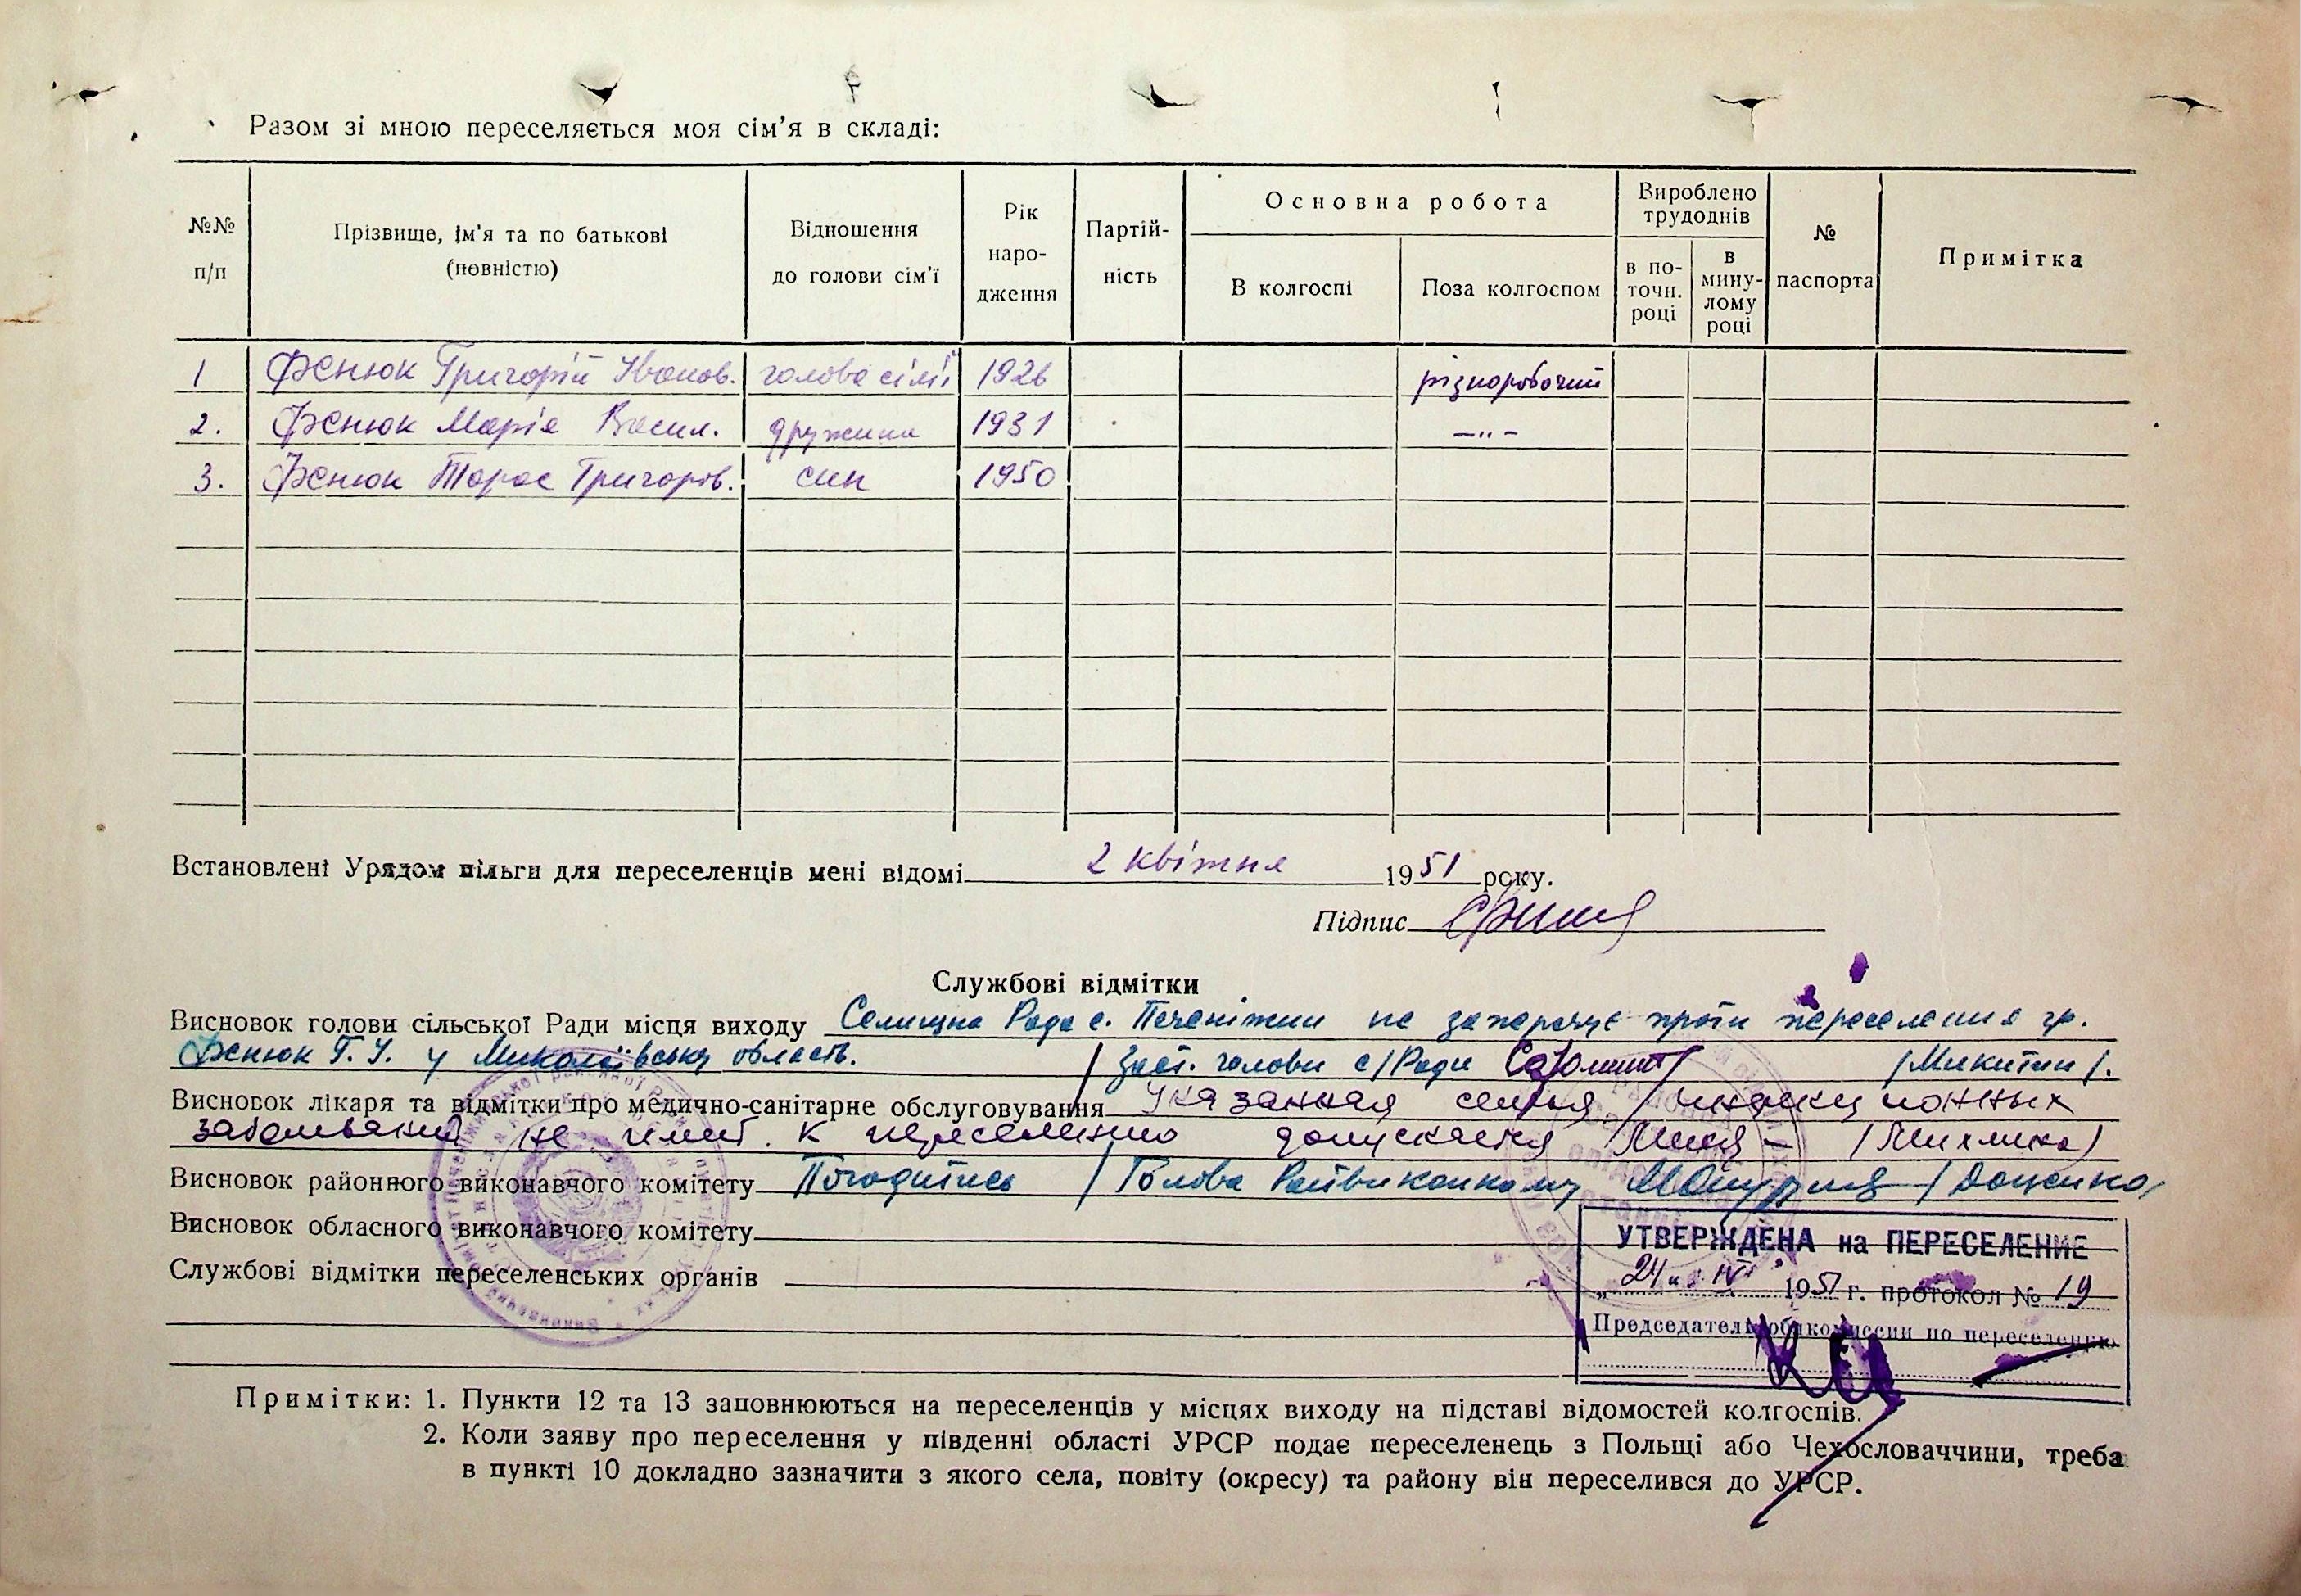 Разом зі мною переселяється моя сім'я в складі:
№№ п/п
Прізвище, ім'я та по батькові (повністю)
Відношення до голови сім'ї
Рік наро-дження
Партій-ність
Основна робота
В колгоспі
Поза колгоспом
Вироблено трудоднів
в по-точн. році
в мину-лому році
№ паспорта
Примітка
1 Фенюк Григорій Іванов. голова сім'ї 1926 різноробочий
2. Фенюк Марія Васил. дружина 1931 —"—
3. Фенюк Тарас Григоров. син 1950
Встановлені Урядом пільги для переселенців мені відомі 2 квітня 1951 року.
Підпис
Службові відмітки
Висновок голови сільської Ради місця виходу Селищна Рада с. Печеніжин не заперечує проти переселення гр.
Фенюк Г. І. у Миколаївську область. / Заст. голови с/Ради /Микитин/.
Висновок лікаря та відмітки про медично-санітарне обслуговування Указанная семья инфекционных
заболеваний не имеет. К переселению допускается
Висновок районного виконавчого комітету Погодитись / Голова Райвиконкому /Доценко/
Висновок обласного виконавчого комітету
Службові відмітки переселенських органів
УТВЕРЖДЕНА на ПЕРЕСЕЛЕНИЕ
„24" IV 1951 г. протокол № 19
Председатель облкомиссии по переселению
Примітки: 1. Пункти 12 та 13 заповнюються на переселенців у місцях виходу на підставі відомостей колгоспів.
2. Коли заяву про переселення у південні області УРСР подає переселенець з Польщі або Чехословаччини, треба
в пункті 10 докладно зазначити з якого села, повіту (окресу) та району він переселився до УРСР.